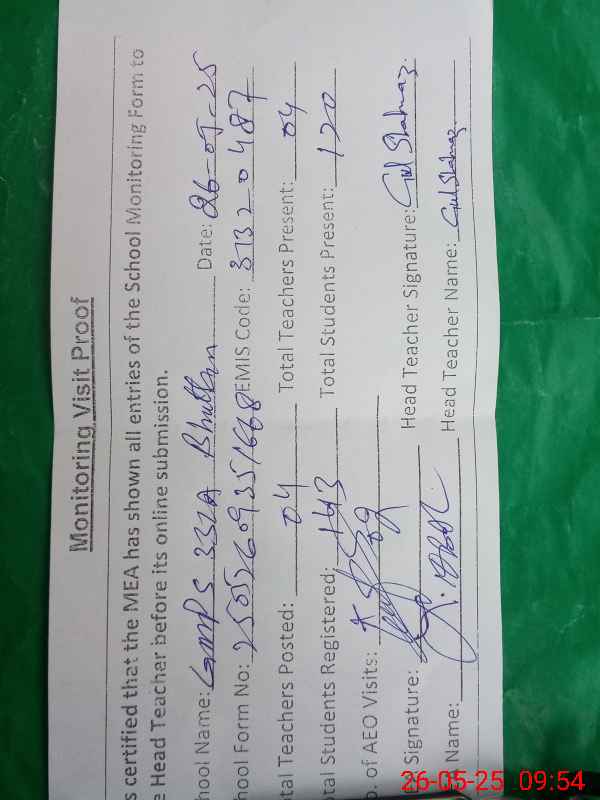 Monitoring Visit Proof
s certified that the MEA has shown all entries of the School Monitoring Form to
e Head Teacher before its online submission.
hool Name: GMPS 332A Date: 26-05-25
hool Form No: EMIS Code: 31320487
tal Teachers Posted: 04 Total Teachers Present: 04
tal Students Registered: 143 Total Students Present: 120
o. of AEO Visits:
Signature: Head Teacher Signature: Gul Shahnaz
Name: Head Teacher Name: Gul Shahnaz
26-05-25 09:54